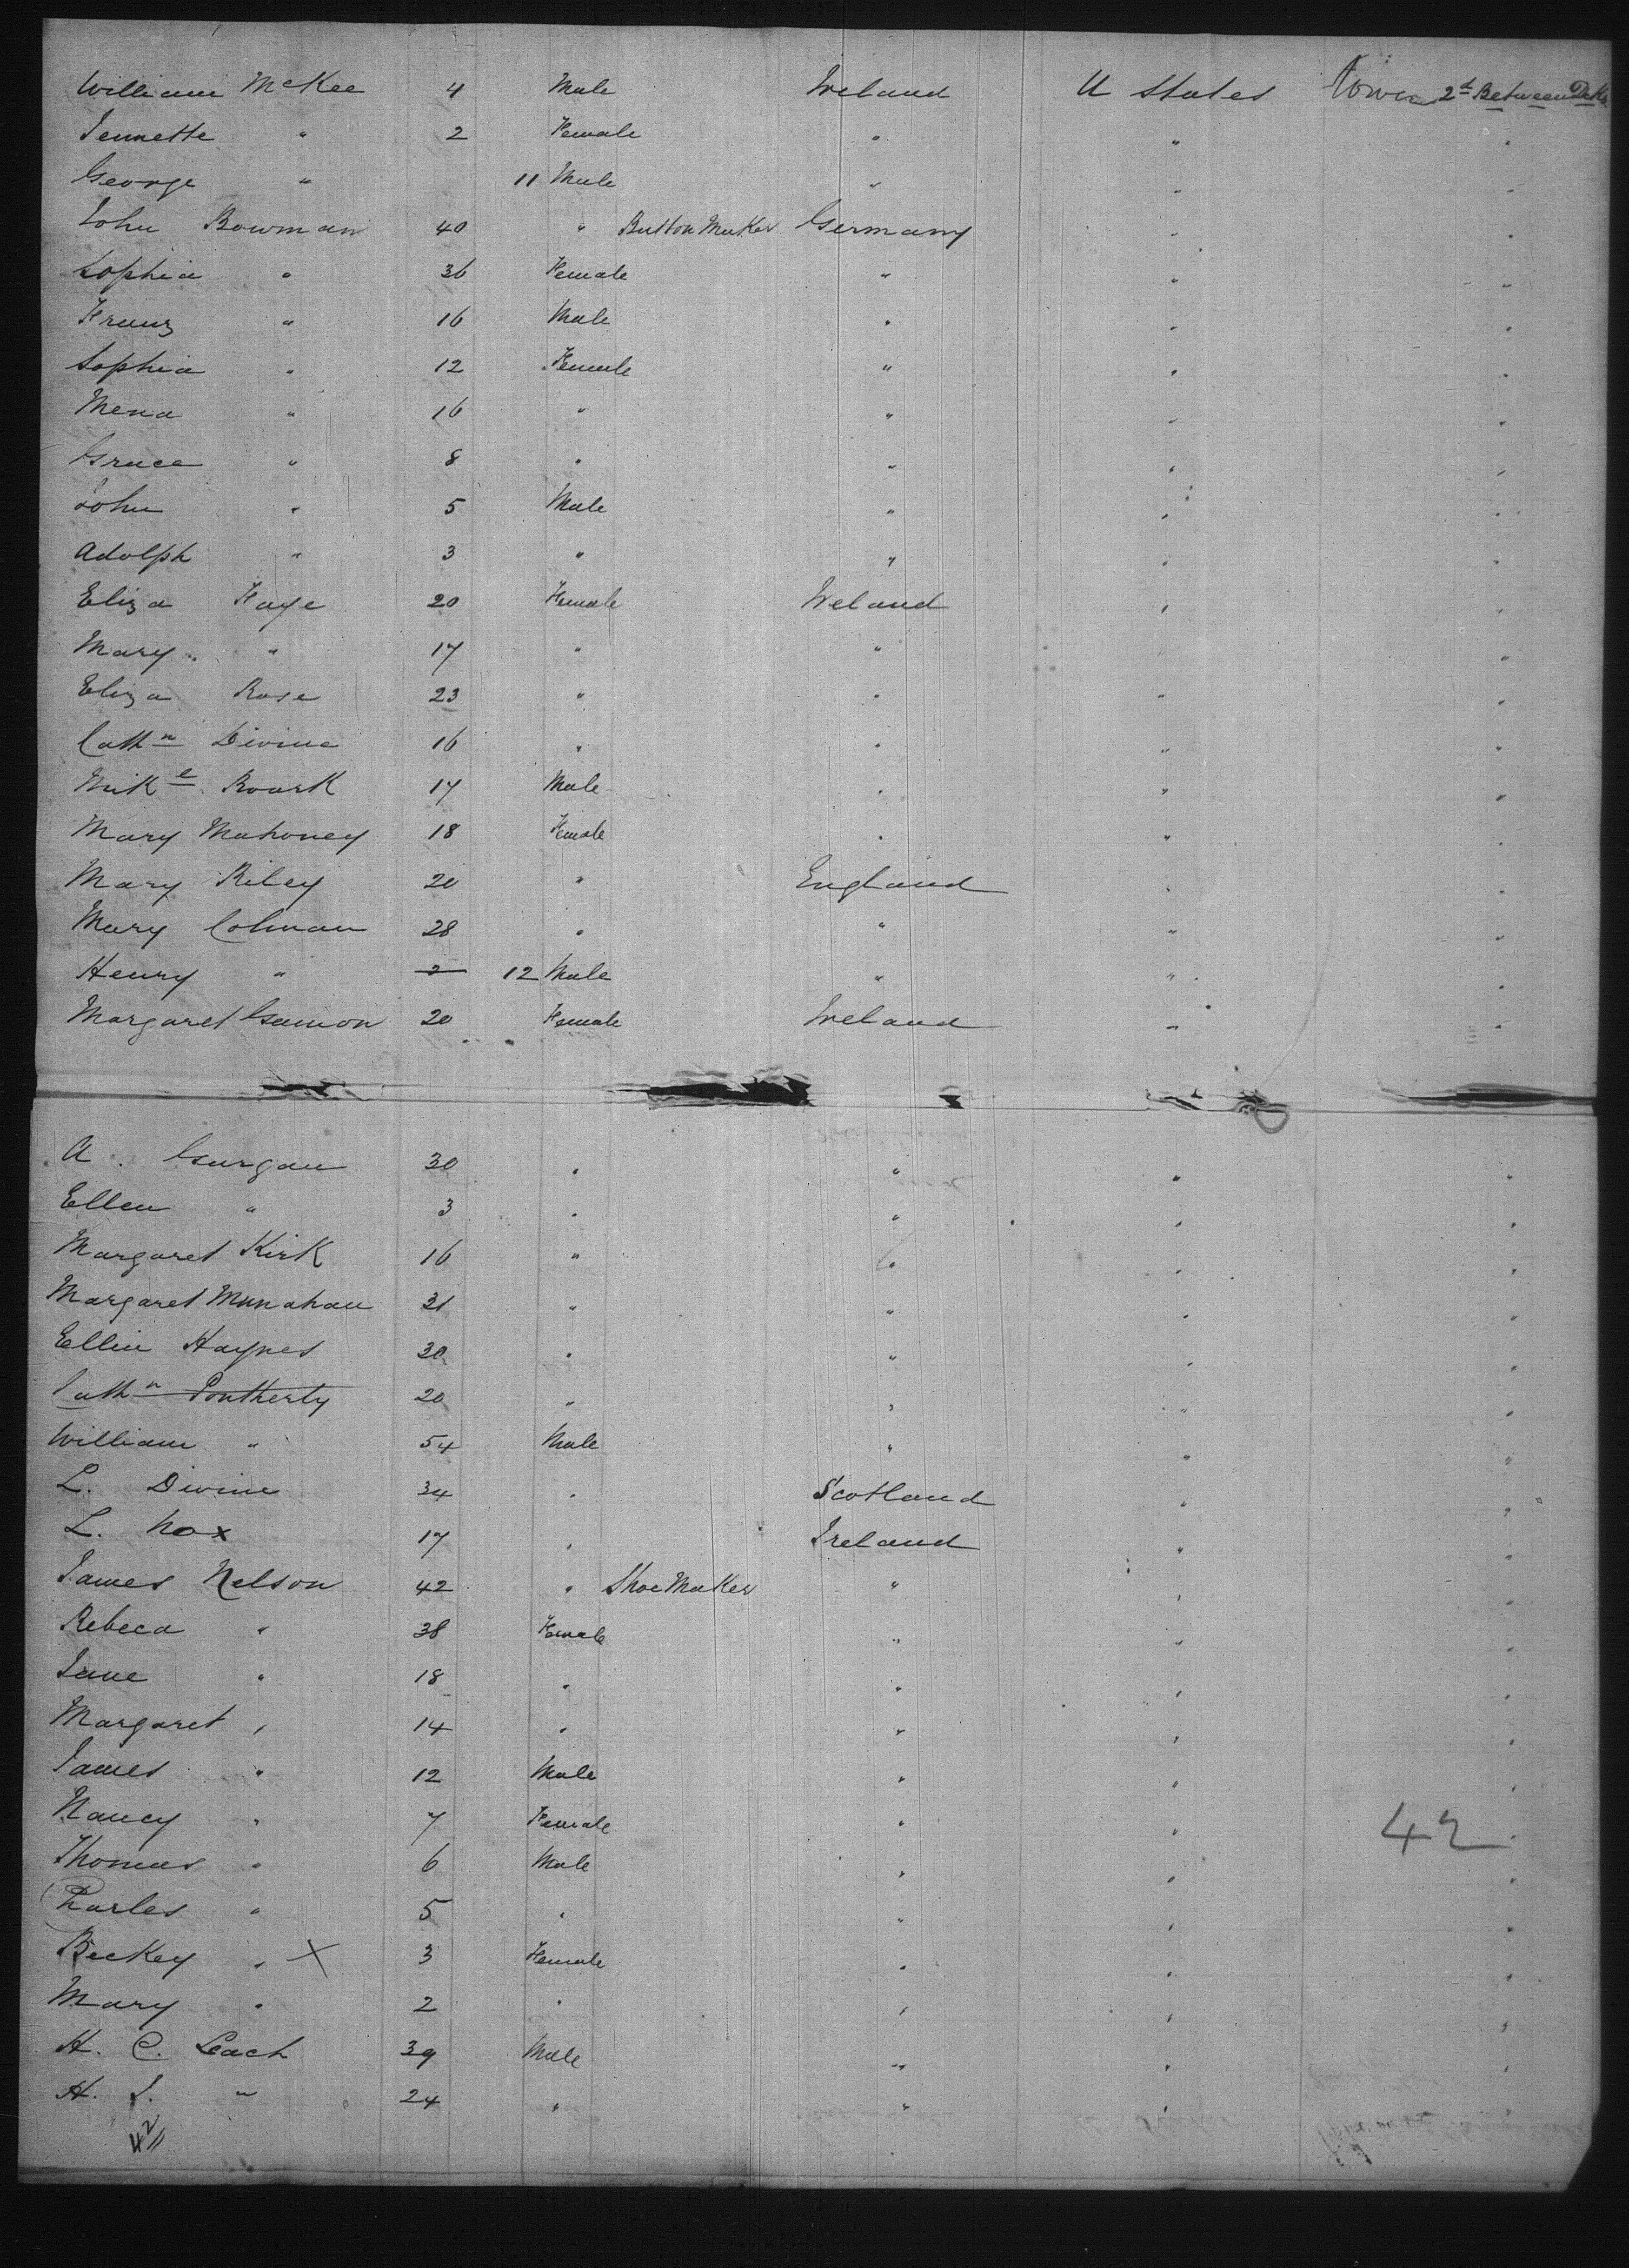 William McKee 4 Male Ireland U States Lower 2d Between Decks
Jennette " 2 Female " " "
George " 11 Male " " "
John Bowman 40 " Button Maker Germany " "
Sophia " 36 Female " " "
Franz " 16 Male " " "
Sophia " 12 Female " " "
Mena " 16 " " " "
Grace " 8 " " " "
John " 5 Male " " "
Adolph " 3 " " " "
Eliza Faye 20 Female Ireland " "
Mary " 17 " " " "
Eliza Rose 23 " " " "
Cathn Divine 16 " " " "
Mikel Roark 17 Male " " "
Mary Mahoney 18 Female " " "
Mary Riley 20 " England " "
Mary Colman 28 " " " "
Henry " 2 12 Male " " "
Margaret Gamon 20 Female Ireland " "
A. Gurgan 30 " " " "
Ellen " 3 " " " "
Margaret Kirk 16 " " " "
Margaret Munahan 31 " " " "
Ellin Haynes 30 " " " "
Cathn Pontherty 20 " " " "
William " 54 Male " " "
L. Divine 34 " Scotland " "
L. Nox 17 " Ireland " "
James Nelson 42 " Shoe Maker " " "
Rebeca " 38 Female " " "
Jane " 18 " " " "
Margaret " 14 " " " "
James " 12 Male " " "
Nancy " 7 Female " " "
42
Thomas " 6 Male " " "
Charles " 5 " " " "
Beckey " X 3 Female " " "
Mary " 2 " " " "
H. C. Leach 39 Male " " "
H. J. " 24 " " " "
42